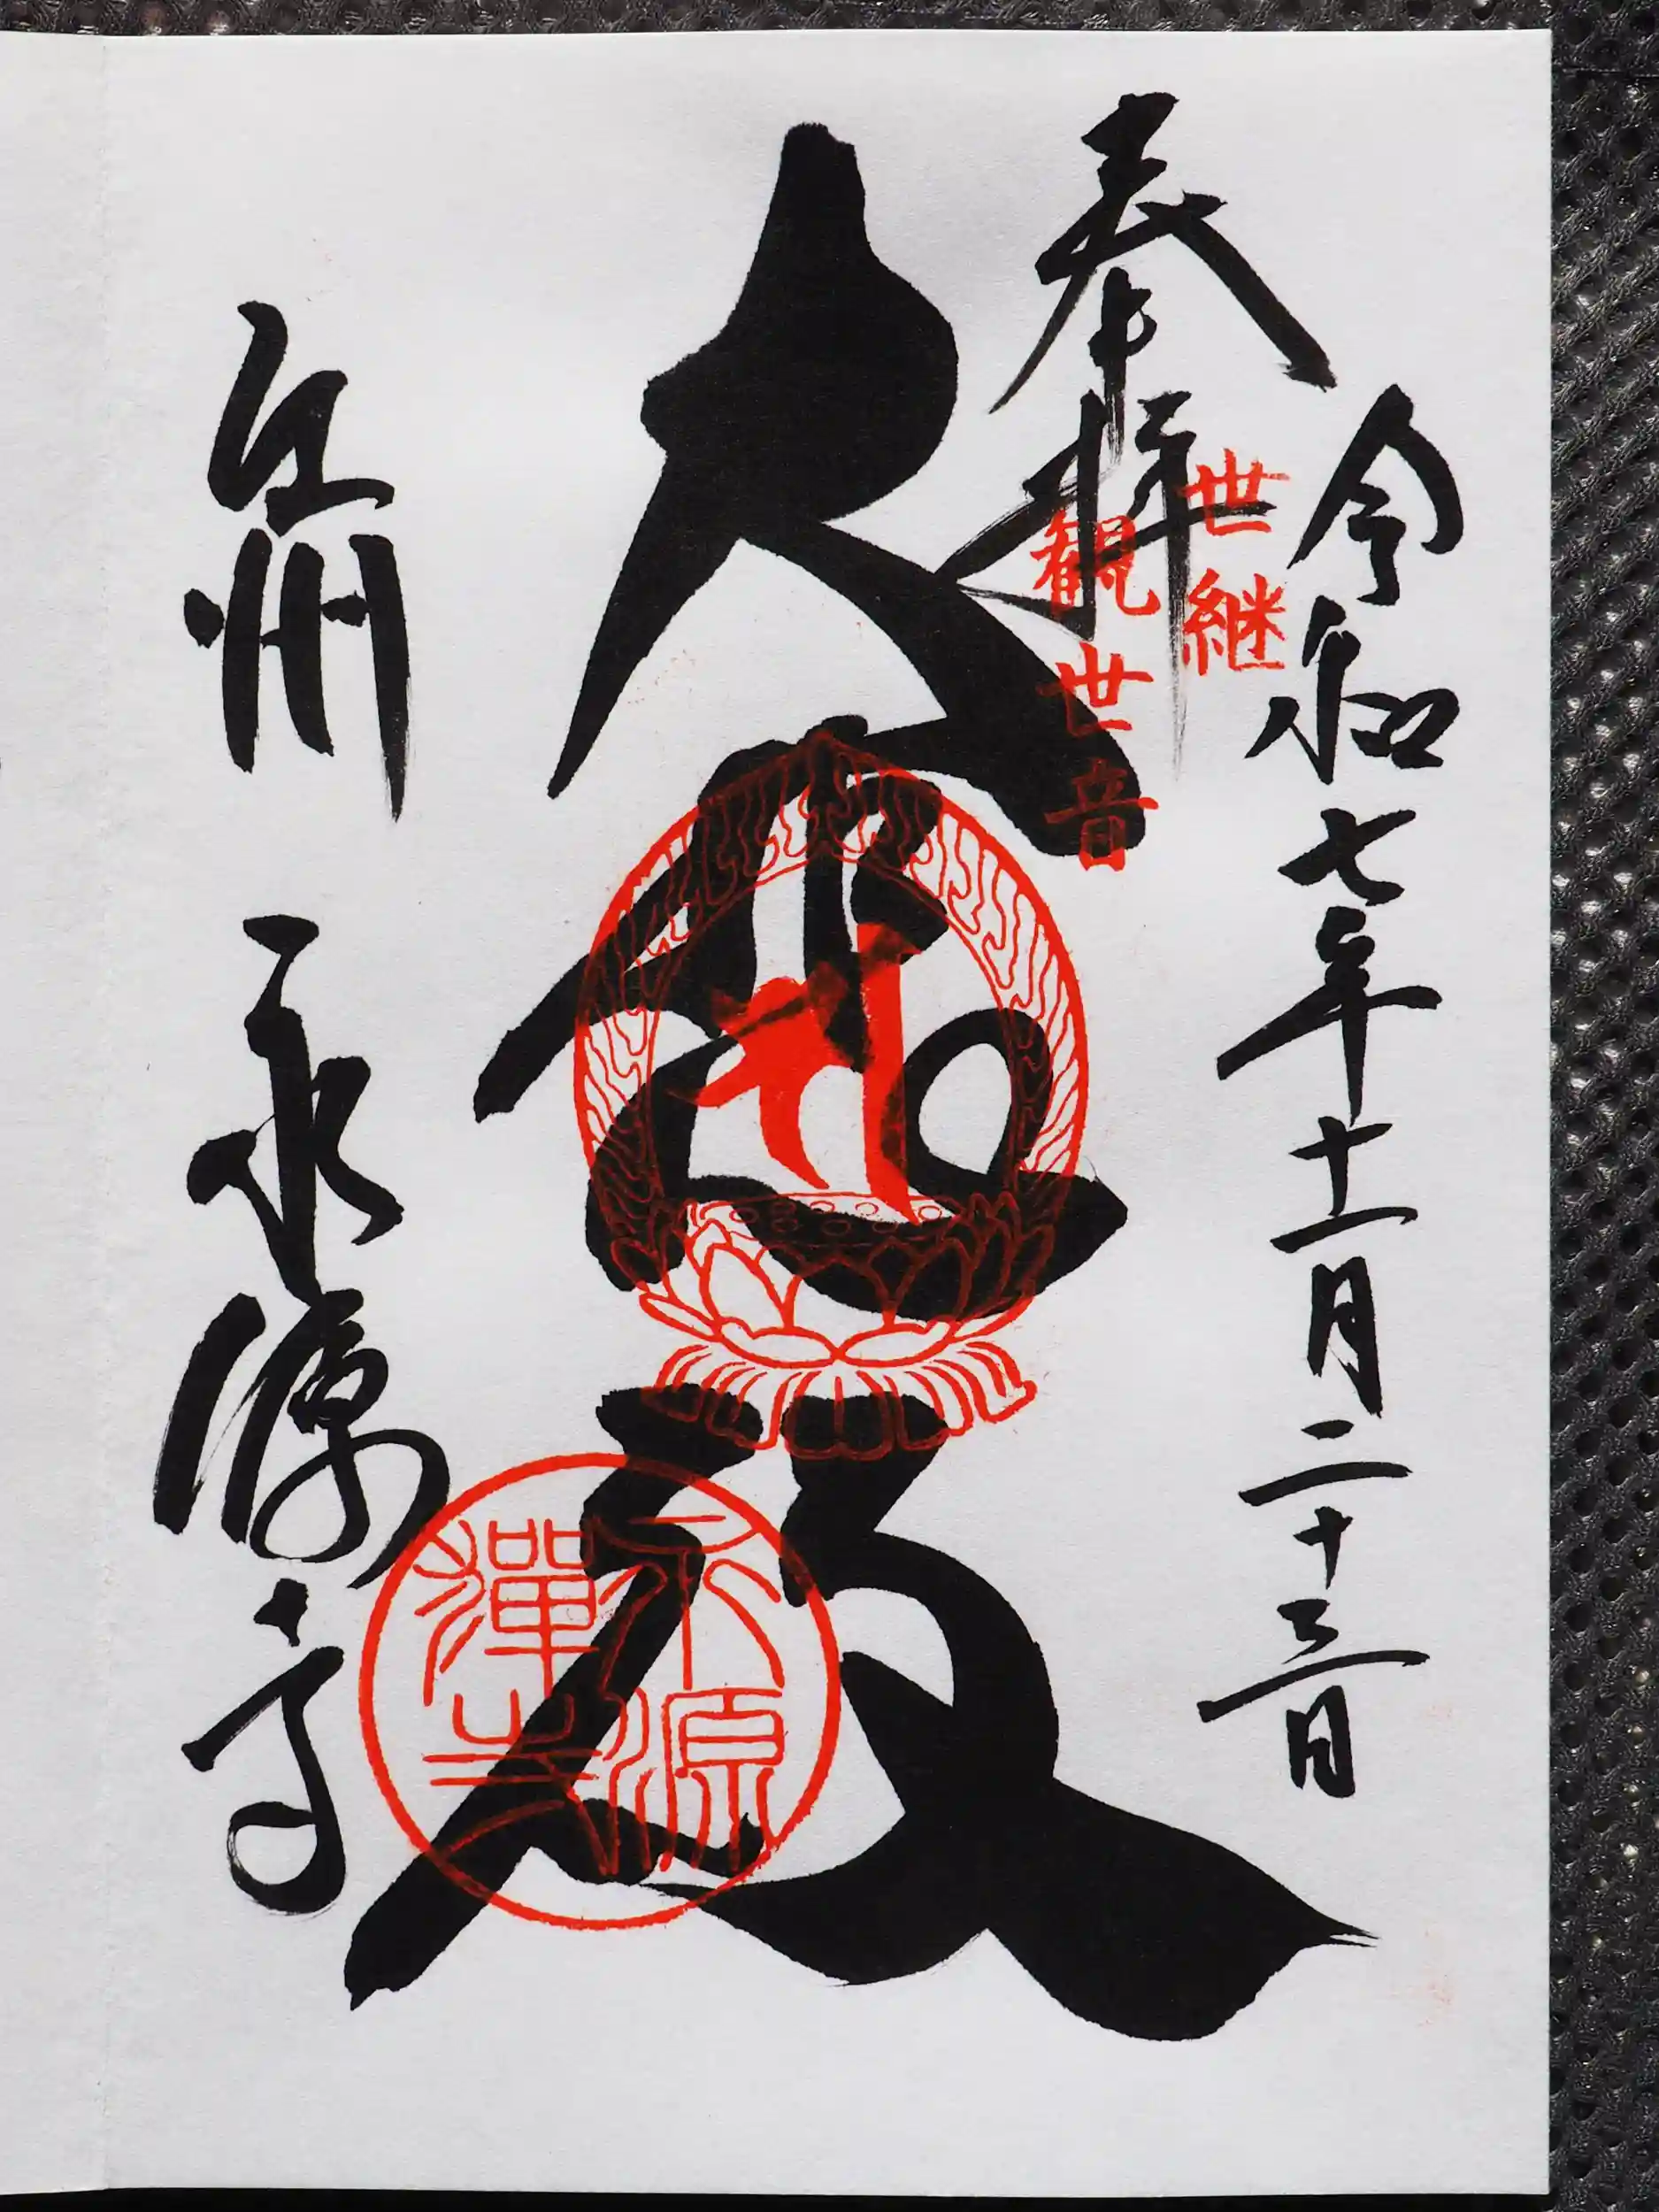 令和七年十一月二十三日
奉拝
世継
観世音
大悲殿
永源
禪寺
江州 永源寺